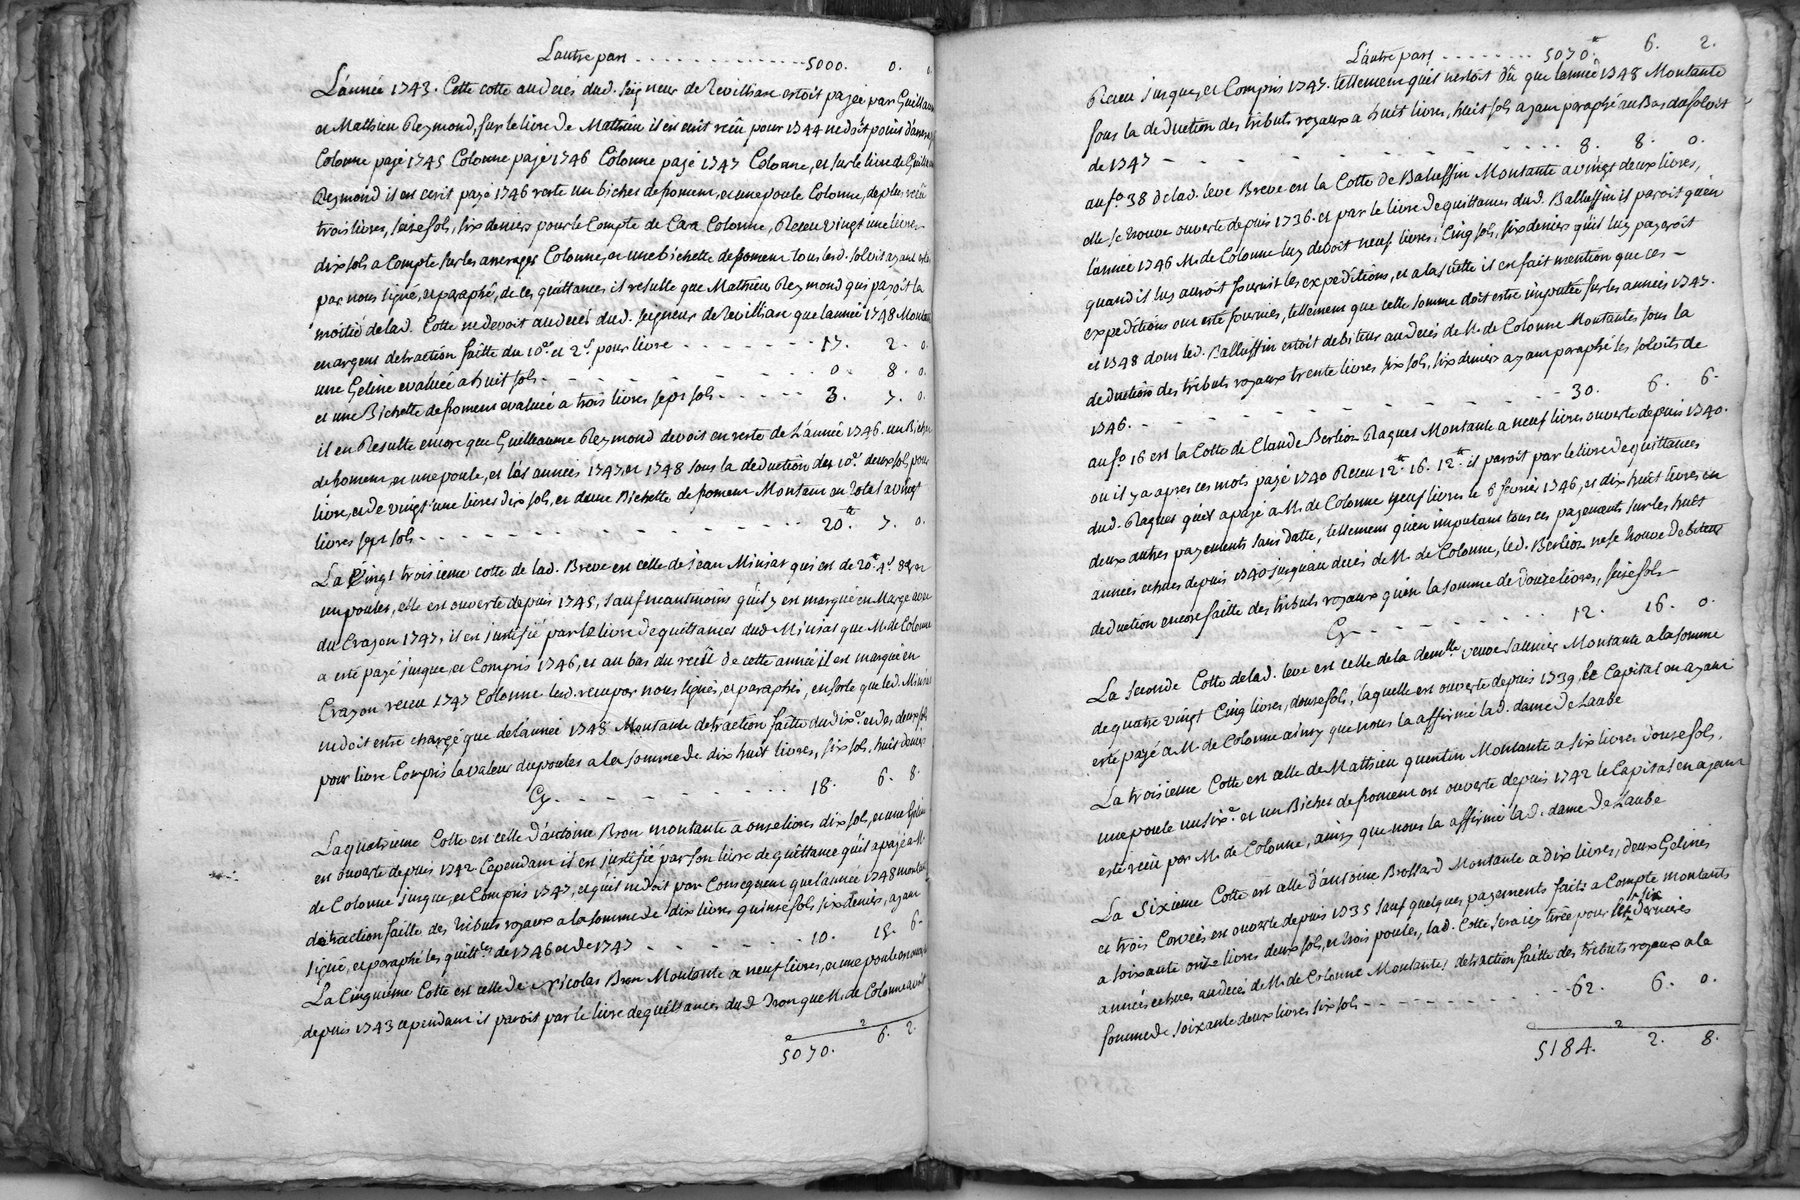 L'autre part . . . . . . . . . . . . . . 5000. 0.
L'année 1743. Cette cotte au decés dud. seigneur de Revillias estoit payée par Guillaume
et Mathieu Reymond, sur le livre de Mathieu il en ecrit recû pour 1744 ne doit point
Colonne payé 1745 Colonne payé 1746 Colonne payé 1747 Colonne, et sur le livre de Guill
Reymond il en ecrit payé 1746 reste un bichet de froment, et une poule Colonne, de plus recû
trois livres, seise sols, six deniers pour le Compte de Cara Colonne, Receu vingt une livres
dix sols a Compte sur les arrerages Colonne, et une bichette de froment tous lesd. soloits ayant estés
par nous signé, et paraphé, de ces quittances il resulte que Mathieu Reymond qui payoit la
moitié de lad. Cotte ne devoit au decés dud. seigneur de Revillias que l'année 1748 Montant
en argent detraction faitte du 10e et 2s pour livre . . . . . . . 17. 2. 0.
une Geline evaluée a huit sols . . . . . . . . 0. 8. 0.
et une Bichette de froment evaluée a trois livres sept sols . . . . . . 3. 7. 0.
il en Resulte encore que Guilleaume Reymond devoit en reste de L'année 1746. un Bichet
de froment et une poule, et les années 1747 et 1748 sous la deduction des 10e deux sols pour
livre, et de vingt une livres dix sols, et d'une Bichette de froment Montant au total a vingt
livres sept sols . . . . . . . . . . 20tt. 7. 0.
La Vingt troisieme cotte de lad. Breve est celle de Jean Minias qui est de 20tt 4s 8d et
un poulet, elle est ouverte depuis 1745, sauf neantmoins qu'il y est marqué en Marge avec
du Crayon 1747, il en justifié par le livre de quittances dud Minias que M. de Colonne
a esté payé jusque, et Compris 1746, et au bas du recû de cette année il est marqué en
Crayon receu 1747 Colonne lesd. recû par nous signés, et paraphés, en sorte que led. Minias
ne doit estre chargé que de l'année 1748 Montante detraction faitte du dixe et des deux sols
pour livre Compris la valeur du poulet a la somme de dix huit livres, six sols, huit deniers
Cy . . . . . . . . . . 18. 6. 8.
La quatrieme Cotte est celle d'antoine Bron montante a onze livres dix sols, et une Geline
en ouverte depuis 1742 Cependant il est justifié par son livre de quittance qu'il a payé a M.
de Colonne jusque, et Compris 1747, et qu'il ne doit par Consequent que l'année 1748 montant
detraction faitte des tributs royaux a la somme de dix livres quinse sols six deniers, ayant
signé, et paraphé les quittces de 1746 et de 1747 . . . . . . . 10. 15. 6.
La Cinquieme Cotte est celle de Nicolas Bron Montante a neuf livres, et une poule en ouverte
depuis 1743 cependant il paroit par le livre de quittances dud Bron que M. de Colonne avoit
5070. 6. 2.
L'autre part . . . . . . . . 5070tt. 6. 2.
Receu jusques, et Compris 1747. tellement qu'il n'estoit dû que l'année 1748 Montante
sous la deduction des tributs royaux a huit livres, huit sols ayant paraphé au Bas du soloit
de 1747 . . . . . . . . . . . . 8. 8. 0.
au fo. 38 de lad. leve Breve est la Cotte de Baluffin Montante a vingt deux livres,
elle se trouve ouverte depuis 1736. et par le livre de quittances dud. Balluffin il paroit qu'en
l'année 1746 M. de Colonne luy devoit neuf livres, Cinq sols, six deniers qu'il luy payeroit
quand il luy auroit fournit les expeditions, et a la suitte il en fait mention que ces
expeditions ont esté fournies, tellement que cette somme doit estre imputée sur les années 1747.
et 1748 dont led. Balluffin estoit debiteur au decés de M. de Colonne Montantes sous la
deduction des tributs royaux trente livres six sols, six deniers ayant paraphé les soloits de
1746. . . . . . . . . . . . . . 30. 6. 6.
au fo. 16 est la Cotte de Claude Berlioz Raques Montante a neuf livres ouverte depuis 1740.
ou il y a apres ces mots payé 1740 Receu 12tt. 16. 12tt. il paroit par le livre de quittances
dud. Raques qu'il a payé a M. de Colonne neuf livres le 8 fevrier 1746, et dix huit livres en
deux autres payements sans datte, tellement qu'en imputant tous ces payements sur les huit
années echues depuis 1740 jusqu'au decés de M. de Colonne, led. Berlioz ne se trouve debiteur
deduction encore faitte des tributs royaux qu'en la somme de Douze livres, seise sols
Cy . . . . . . . . . 12. 16. 0.
La seconde Cotte de lad. leve est celle de la demlle veuve salunier Montante a la somme
de quatre vingt Cinq livres, douse sols, laquelle est ouverte depuis 1739. le Capital en ayant
esté payé a M. de Colonne ainsy que nous l'a affirmé lad. dame De Laube
La troisieme Cotte est celle de Mathieu quentin Montante a six livres douse sols,
une poule un sixe. et un Bichet de froment est ouverte depuis 1742 le Capital en ayant
esté recû par M. de Colonne, ainsy que nous l'a affirmé lad. dame De Laube
La Sixieme Cotte est celle d'antoine Brossard Montante a dix livres, deux Gelines
et trois Corvées, est ouverte depuis 1735 sauf quelques payements faits a Compte montants
a soixante onse livres deux sols, et trois poules, lad. Cotte sera icy tirée pour les six dernieres
années echues au decés de M. de Colonne Montantes detraction faitte des tributs royaux a la
somme de soixante deux livres six sols . . . . . . . . . . 62. 6. 0.
5184. 2. 8.